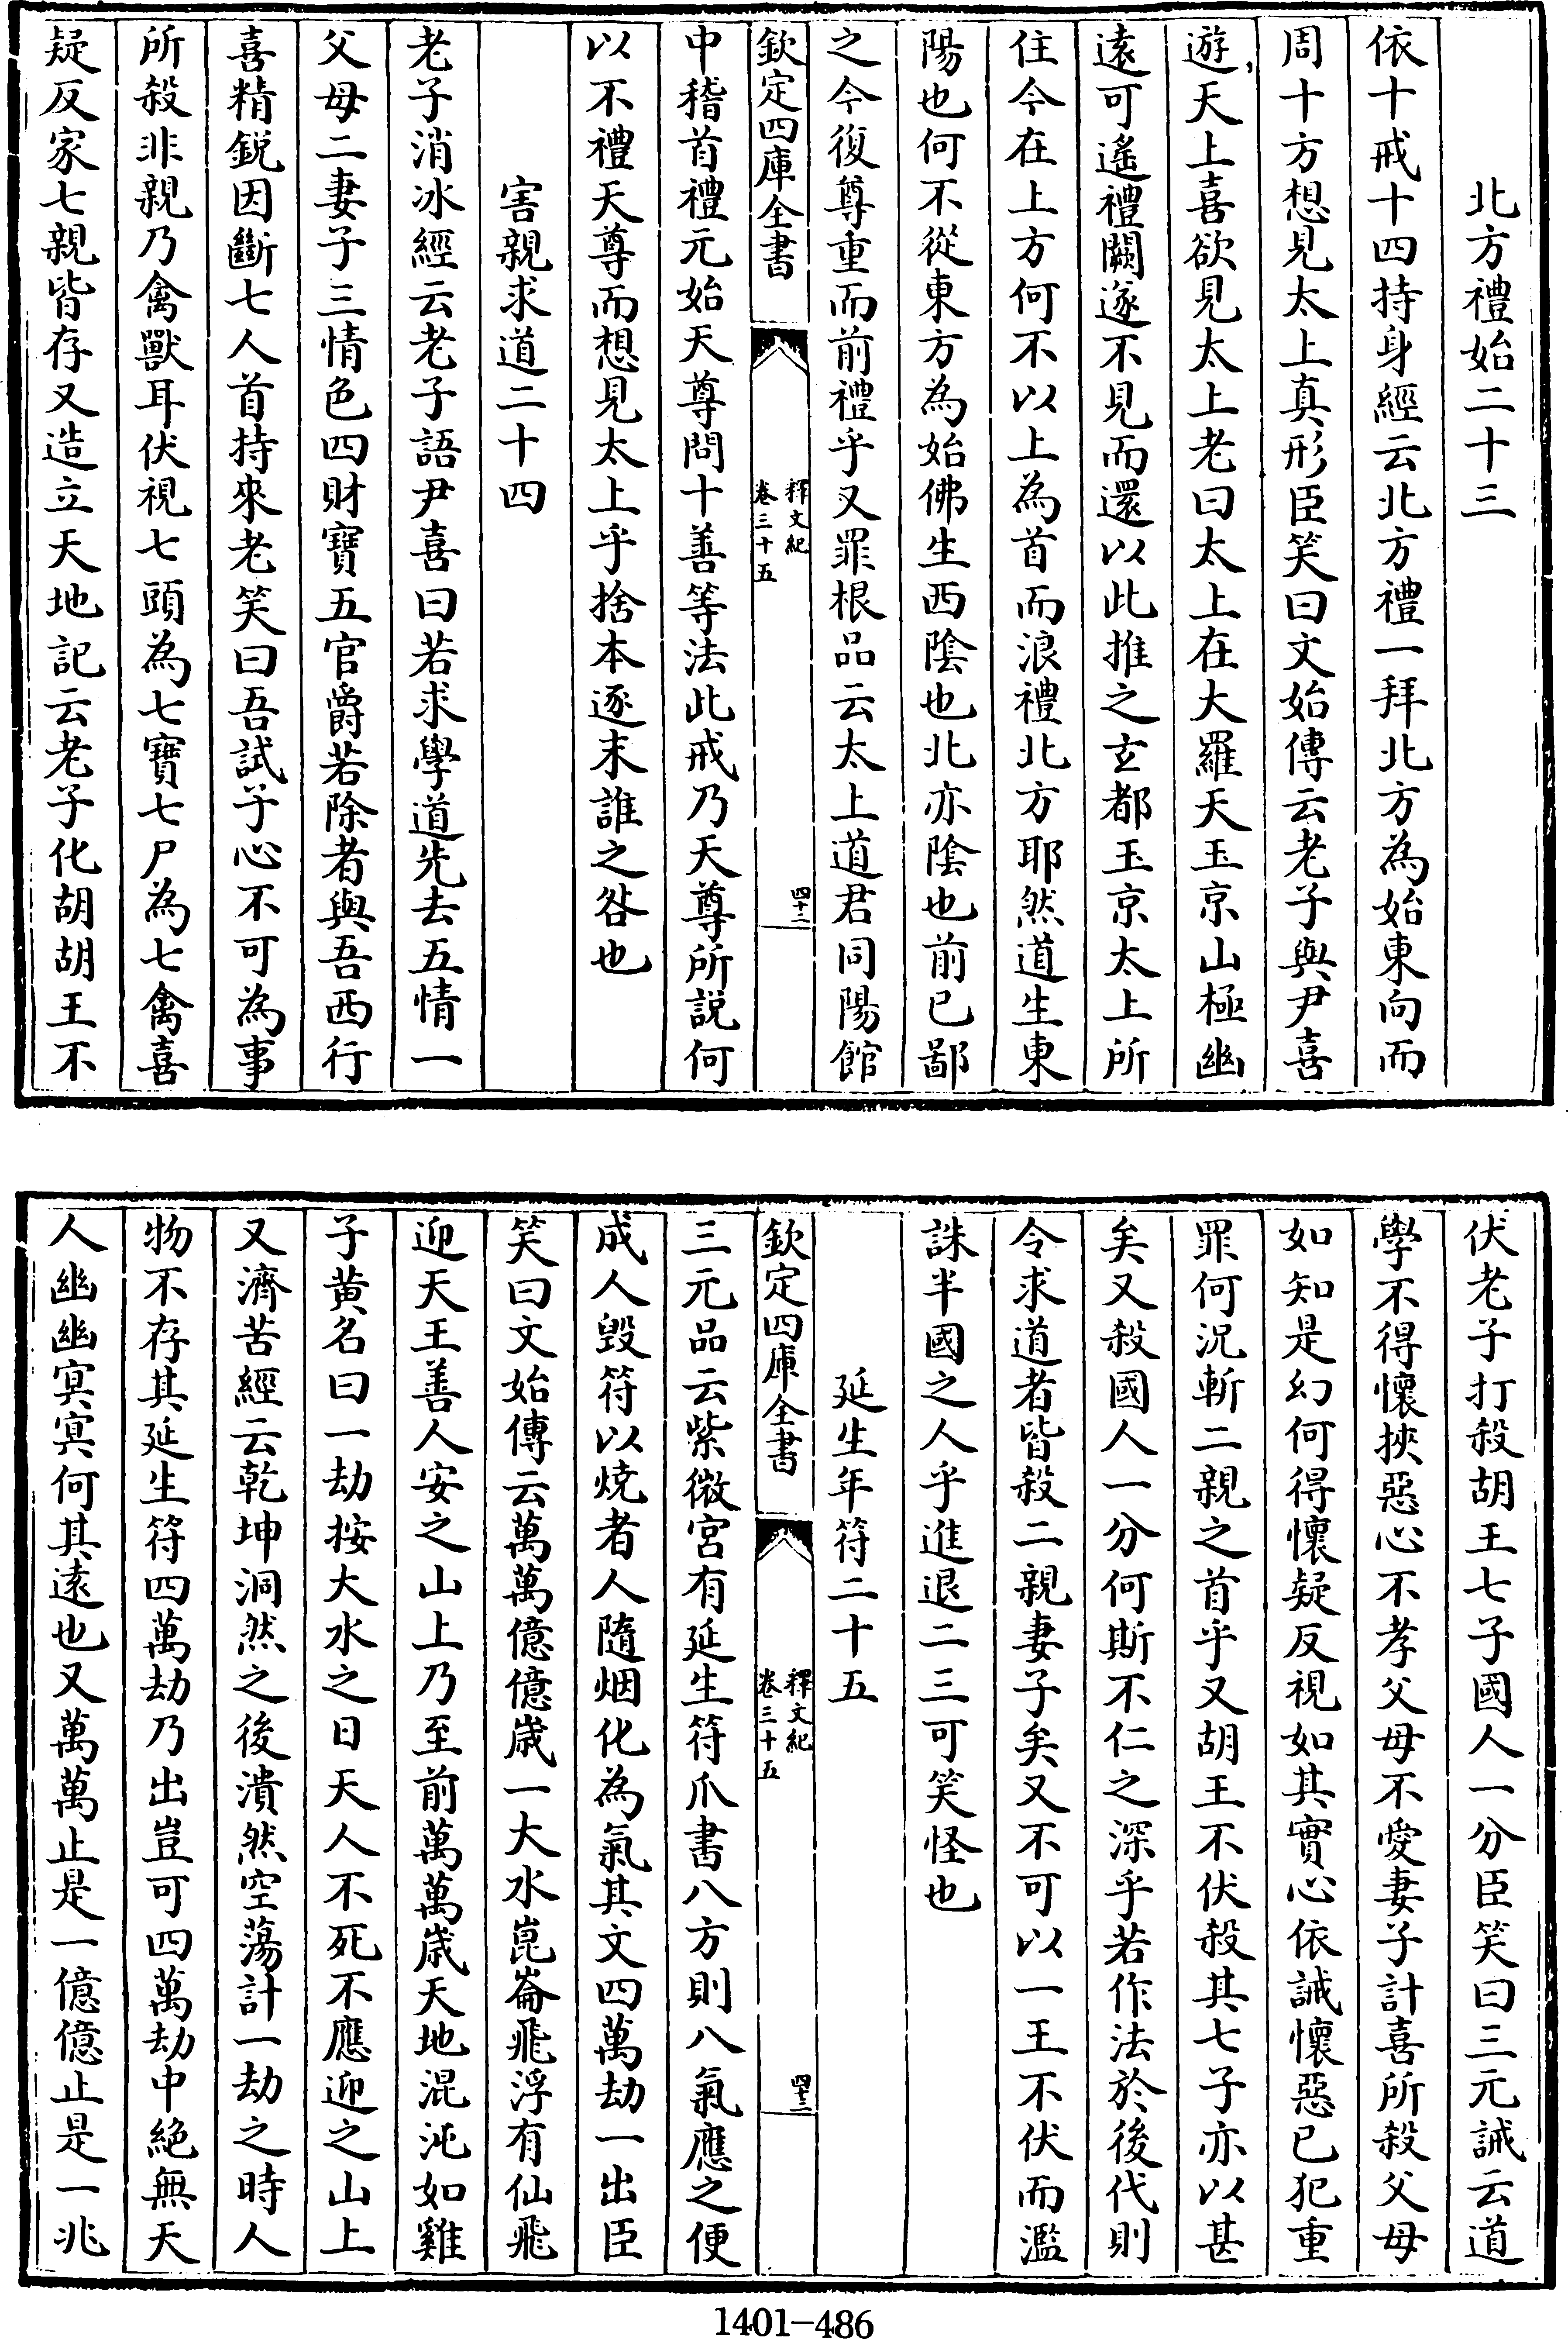 北方禮始二十三
依十戒十四持身經云北方禮一拜北方為始東向而
周十方想見太上真形臣笑曰文始傳云老子與尹喜
遊天上喜欲見太上老曰太上在大羅天玉京山極幽
遠可遙禮闕遂不見而還以此推之玄都玉京太上所
住今在上方何不以上為首而浪禮北方耶然道生東
陽也何不從東方為始佛生西陰也北亦陰也前已鄙
之今復尊重而前禮乎又罪根品云太上道君同陽館
欽定四庫全書
釋文紀
卷三十五
四十二
中稽首禮元始天尊問十善等法此戒乃天尊所説何
以不禮天尊而想見太上乎捨本逐末誰之咎也
害親求道二十四
老子消冰經云老子語尹喜曰若求學道先去五情一
父母二妻子三情色四財寶五官爵若除者與吾西行
喜精鋭因斷七人首持來老笑曰吾試子心不可為事
所殺非親乃禽獸耳伏視七頭為七寶七尸為七禽喜
疑反家七親皆存又造立天地記云老子化胡胡王不
伏老子打殺胡王七子國人一分臣笑曰三元誡云道
學不得懷挾惡心不孝父母不愛妻子計喜所殺父母
如知是幻何得懷疑反視如其實心依誡懷惡已犯重
罪何況斬二親之首乎又胡王不伏殺其七子亦以甚
矣又殺國人一分何斯不仁之深乎若作法於後代則
令求道者皆殺二親妻子矣又不可以一王不伏而濫
誅半國之人乎進退二三可笑怪也
延生年符二十五
欽定四庫全書
釋文紀
卷三十五
四十三
三元品云紫微宮有延生符爪書八方則八氣應之便
成人毁符以焼者人隨烟化為氣其文四萬劫一出臣
笑曰文始傳云萬萬億億歲一大水崑崙飛浮有仙飛
迎天王善人安之山上乃至前萬萬歲天地混沌如雞
子黄名曰一劫按大水之日天人不死不應迎之山上
又濟苦經云乾坤洞然之後潰然空蕩計一劫之時人
物不存其延生符四萬劫乃出豈可四萬劫中絶無天
人幽幽冥冥何其遠也又萬萬止是一億億止是一兆
1401-486